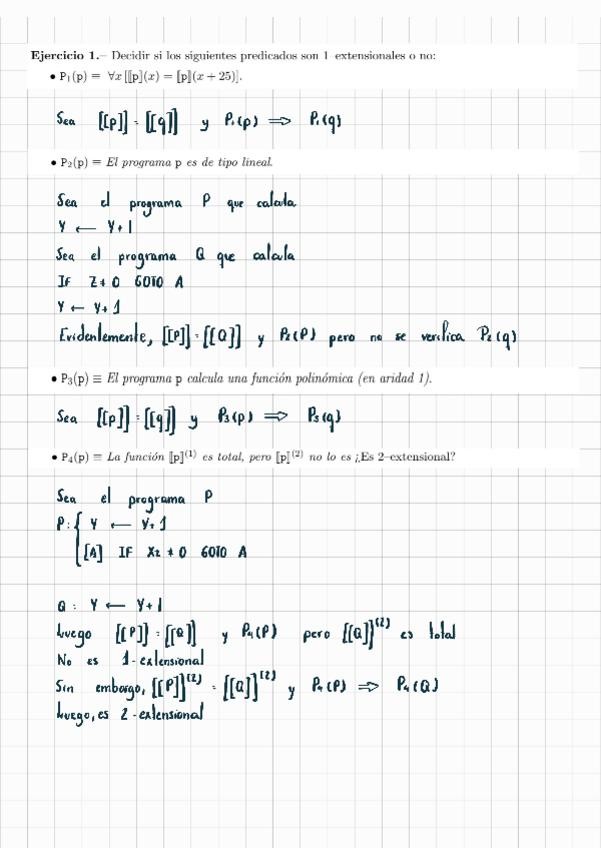 Ejercicio 1.– Decidir si los siguientes predicados son 1–extensionales o no:
• P₁(p) ≡ ∀x [⟦p⟧(x) = ⟦p⟧(x + 25)].
Sea [[p]] = [[q]] y P₁(p) ⟹ P₁(q)
• P₂(p) ≡ El programa p es de tipo lineal.
Sea el programa P que calcula
Y ← Y+1
Sea el programa Q que calcula
IF Z≠0 GOTO A
Y ← Y+1
Evidentemente, [[P]] = [[Q]] y P₂(P) pero no se verifica P₂(q)
• P₃(p) ≡ El programa p calcula una función polinómica (en aridad 1).
Sea [[p]] = [[q]] y P₃(p) ⟹ P₃(q)
• P₄(p) ≡ La función ⟦p⟧⁽¹⁾ es total, pero ⟦p⟧⁽²⁾ no lo es ¿Es 2–extensional?
Sea el programa P
P: { Y ← Y+1
[A] IF X₂ ≠ 0 GOTO A
Q: Y ← Y+1
Luego [[P]] = [[Q]] y P₄(P) pero [[Q]]⁽²⁾ es total
No es 1-extensional
Sin embargo, [[P]]⁽²⁾ = [[Q]]⁽²⁾ y P₄(P) ⟹ P₄(Q)
Luego, es 2-extensional